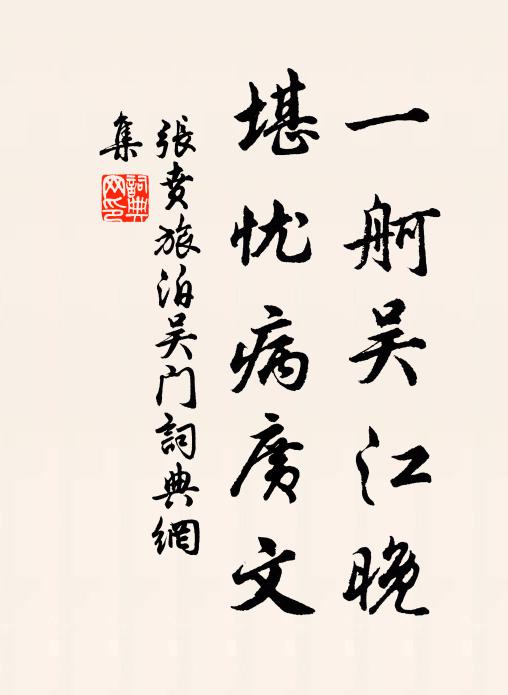 一舸吴江晚
堪忧病廣文
張賁旅泊吴门詞典網
集
詞典
网印